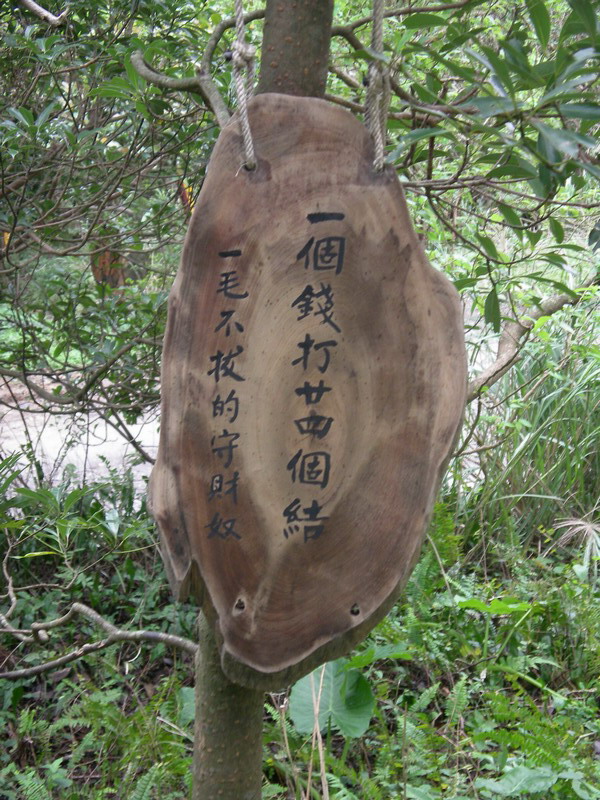 一個錢打廿四個結
一毛不拔的守財奴